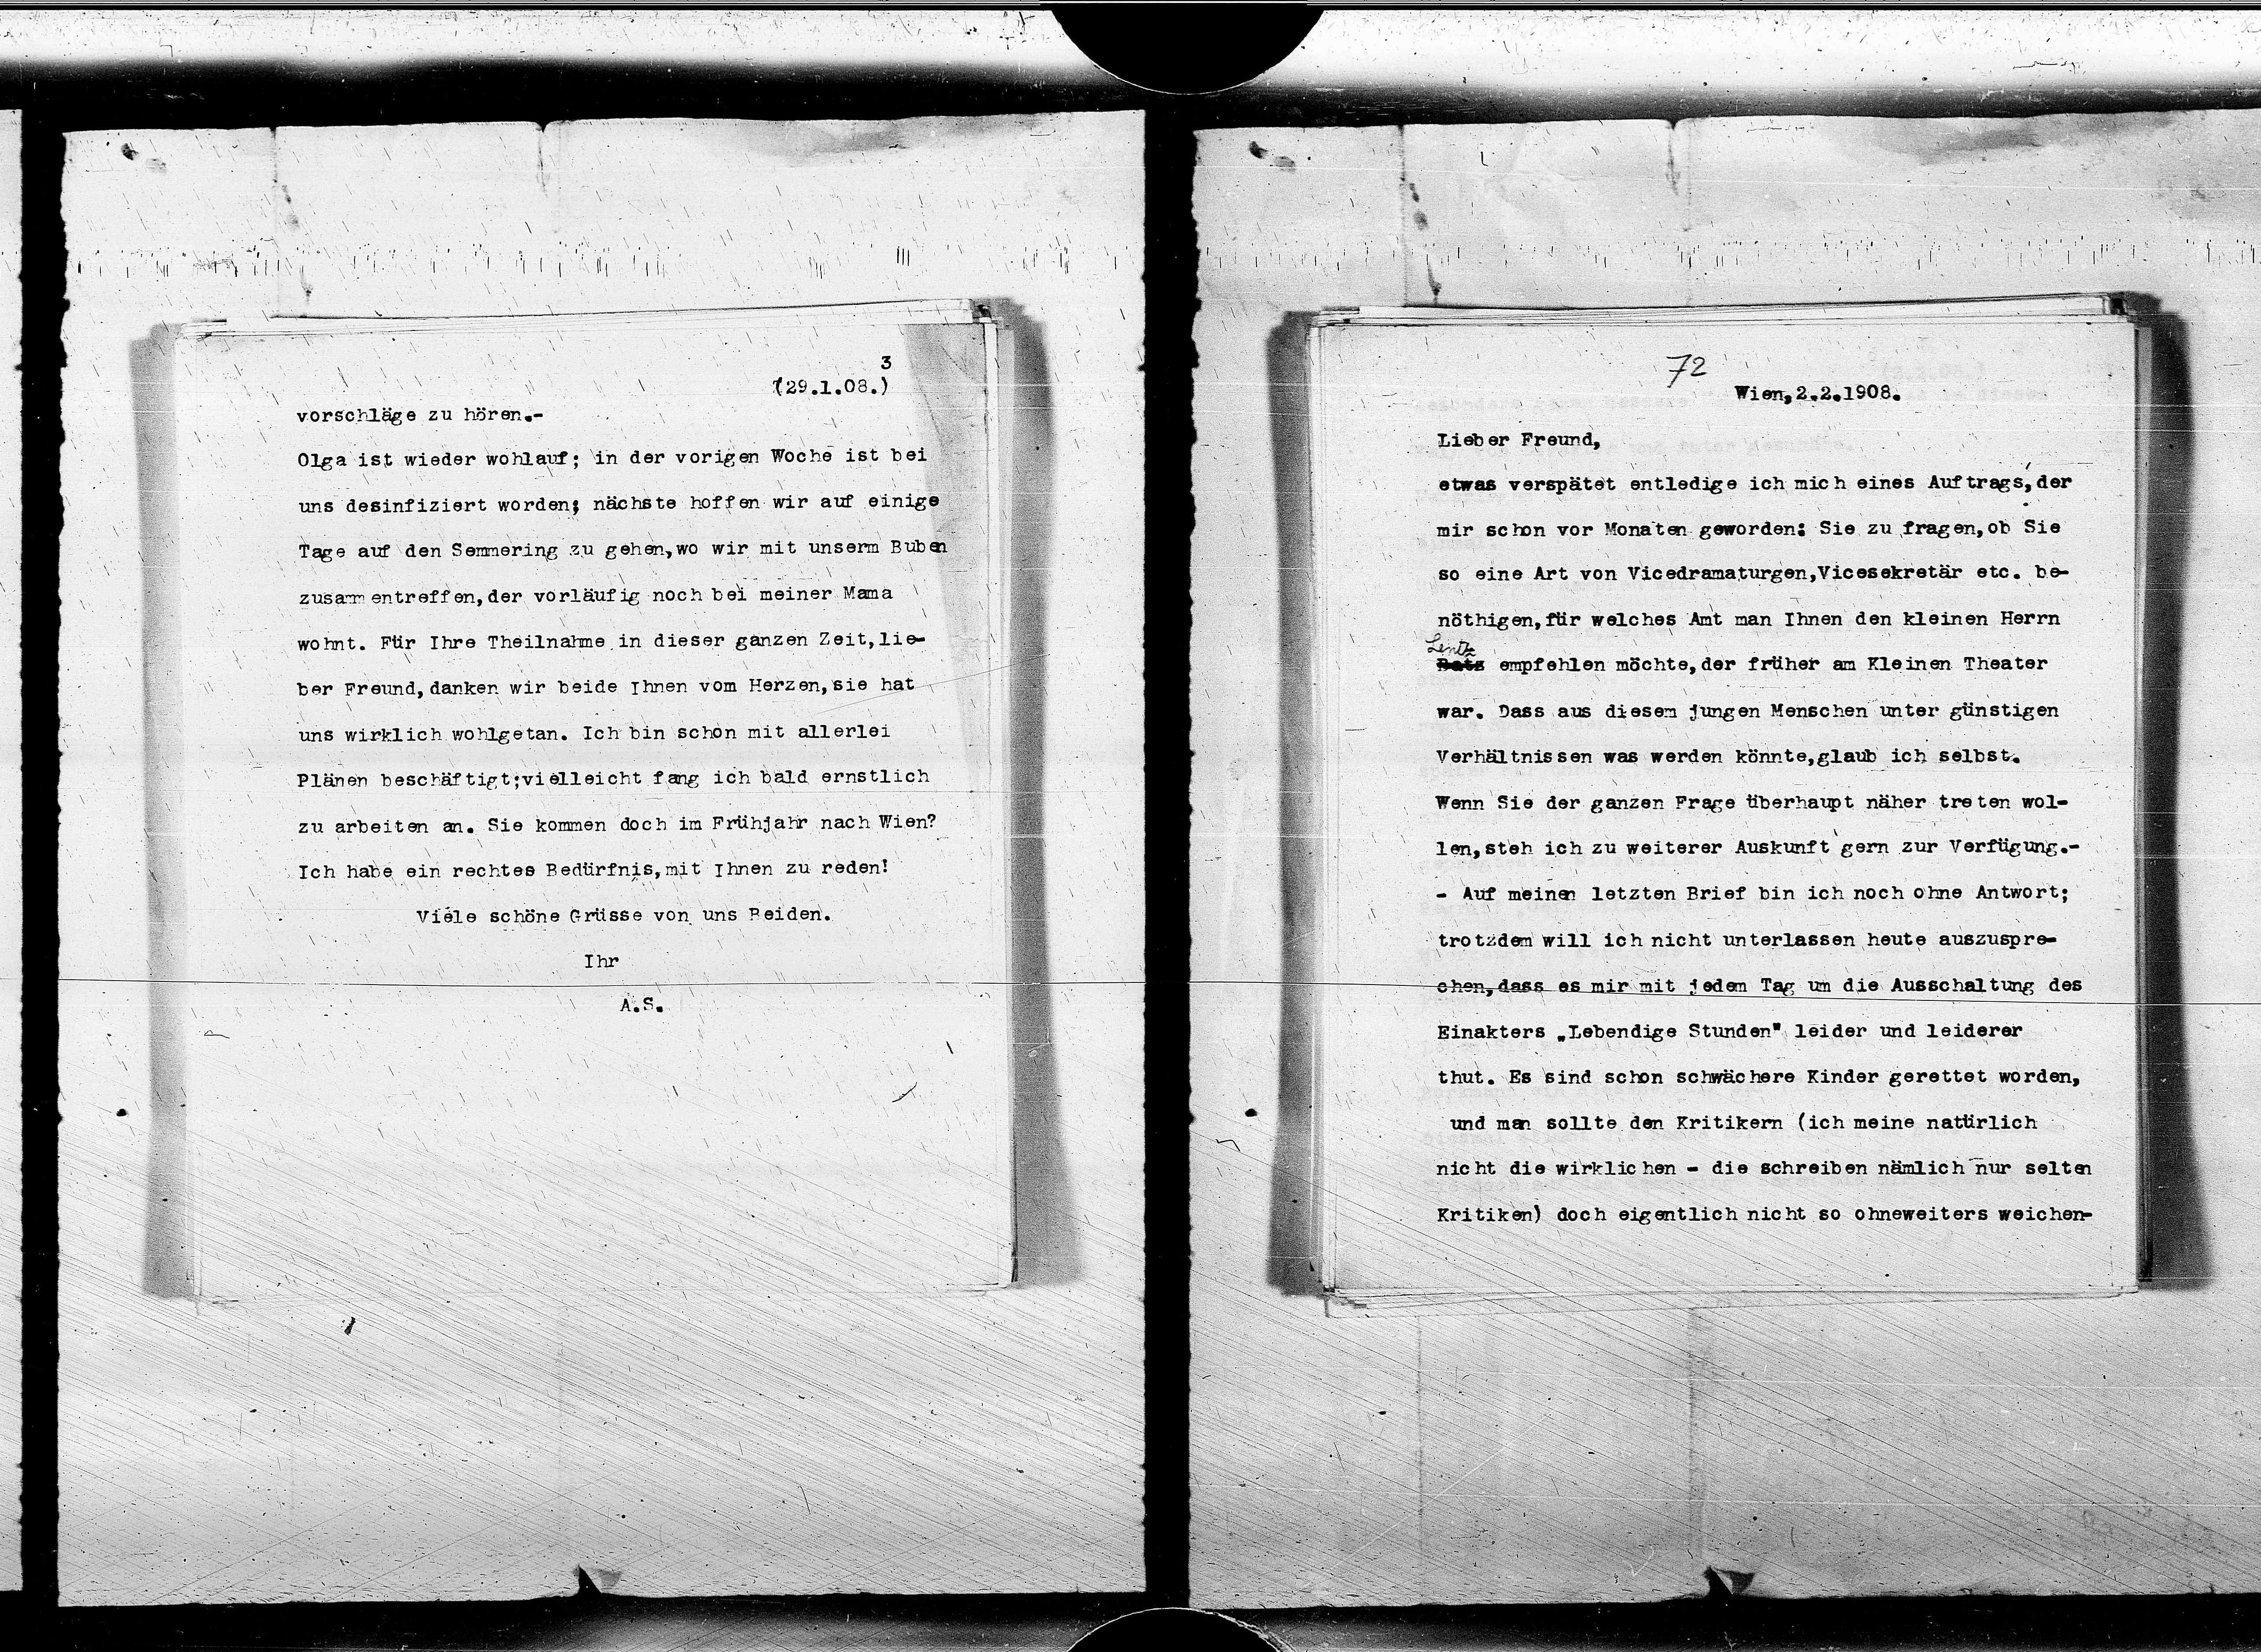 3
(29.1.08.)
vorschläge zu hören.-
Olga ist wieder wohlauf; in der vorigen Woche ist bei
uns desinfiziert worden; nächste hoffen wir auf einige
Tage auf den Semmering zu gehen,wo wir mit unserm Buben
zusammentreffen,der vorläufig noch bei meiner Mama
wohnt. Für Ihre Theilnahme in dieser ganzen Zeit,lie-
ber Freund,danken wir beide Ihnen vom Herzen,sie hat
uns wirklich wohlgetan. Ich bin schon mit allerlei
Plänen beschäftigt;vielleicht fang ich bald ernstlich
zu arbeiten an. Sie kommen doch im Frühjahr nach Wien?
Ich habe ein rechtes Bedürfnis,mit Ihnen zu reden!
Viele schöne Grüsse von uns Beiden.
Ihr
A.S.
72
Wien,2.2.1908.
Lieber Freund,
etwas verspätet entledige ich mich eines Auftrags,der
mir schon vor Monaten geworden: Sie zu fragen,ob Sie
so eine Art von Vicedramaturgen,Vicesekretär etc. be-
nöthigen,für welches Amt man Ihnen den kleinen Herrn
Lentz
empfehlen möchte,der früher am Kleinen Theater
war. Dass aus diesem jungen Menschen unter günstigen
Verhältnissen was werden könnte,glaub ich selbst.
Wenn Sie der ganzen Frage überhaupt näher treten wol-
len,steh ich zu weiterer Auskunft gern zur Verfügung.-
- Auf meinen letzten Brief bin ich noch ohne Antwort;
trotzdem will ich nicht unterlassen heute auszuspre-
chen,dass es mir mit jedem Tag um die Ausschaltung des
Einakters „Lebendige Stunden" leider und leiderer
thut. Es sind schon schwächere Kinder gerettet worden,
und man sollte den Kritikern (ich meine natürlich
nicht die wirklichen - die schreiben nämlich nur selten
Kritiken) doch eigentlich nicht so ohneweiters weichen-